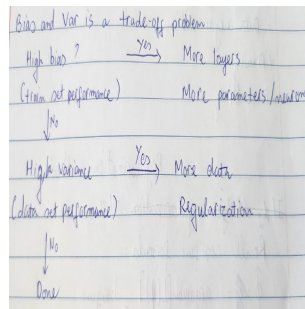 Bias and Var is a trade-off problem
High bias? Yes More layers
(train set performance) More parameters/neuron
No
High variance Yes More data
(data set performance) Regularization
No
Done